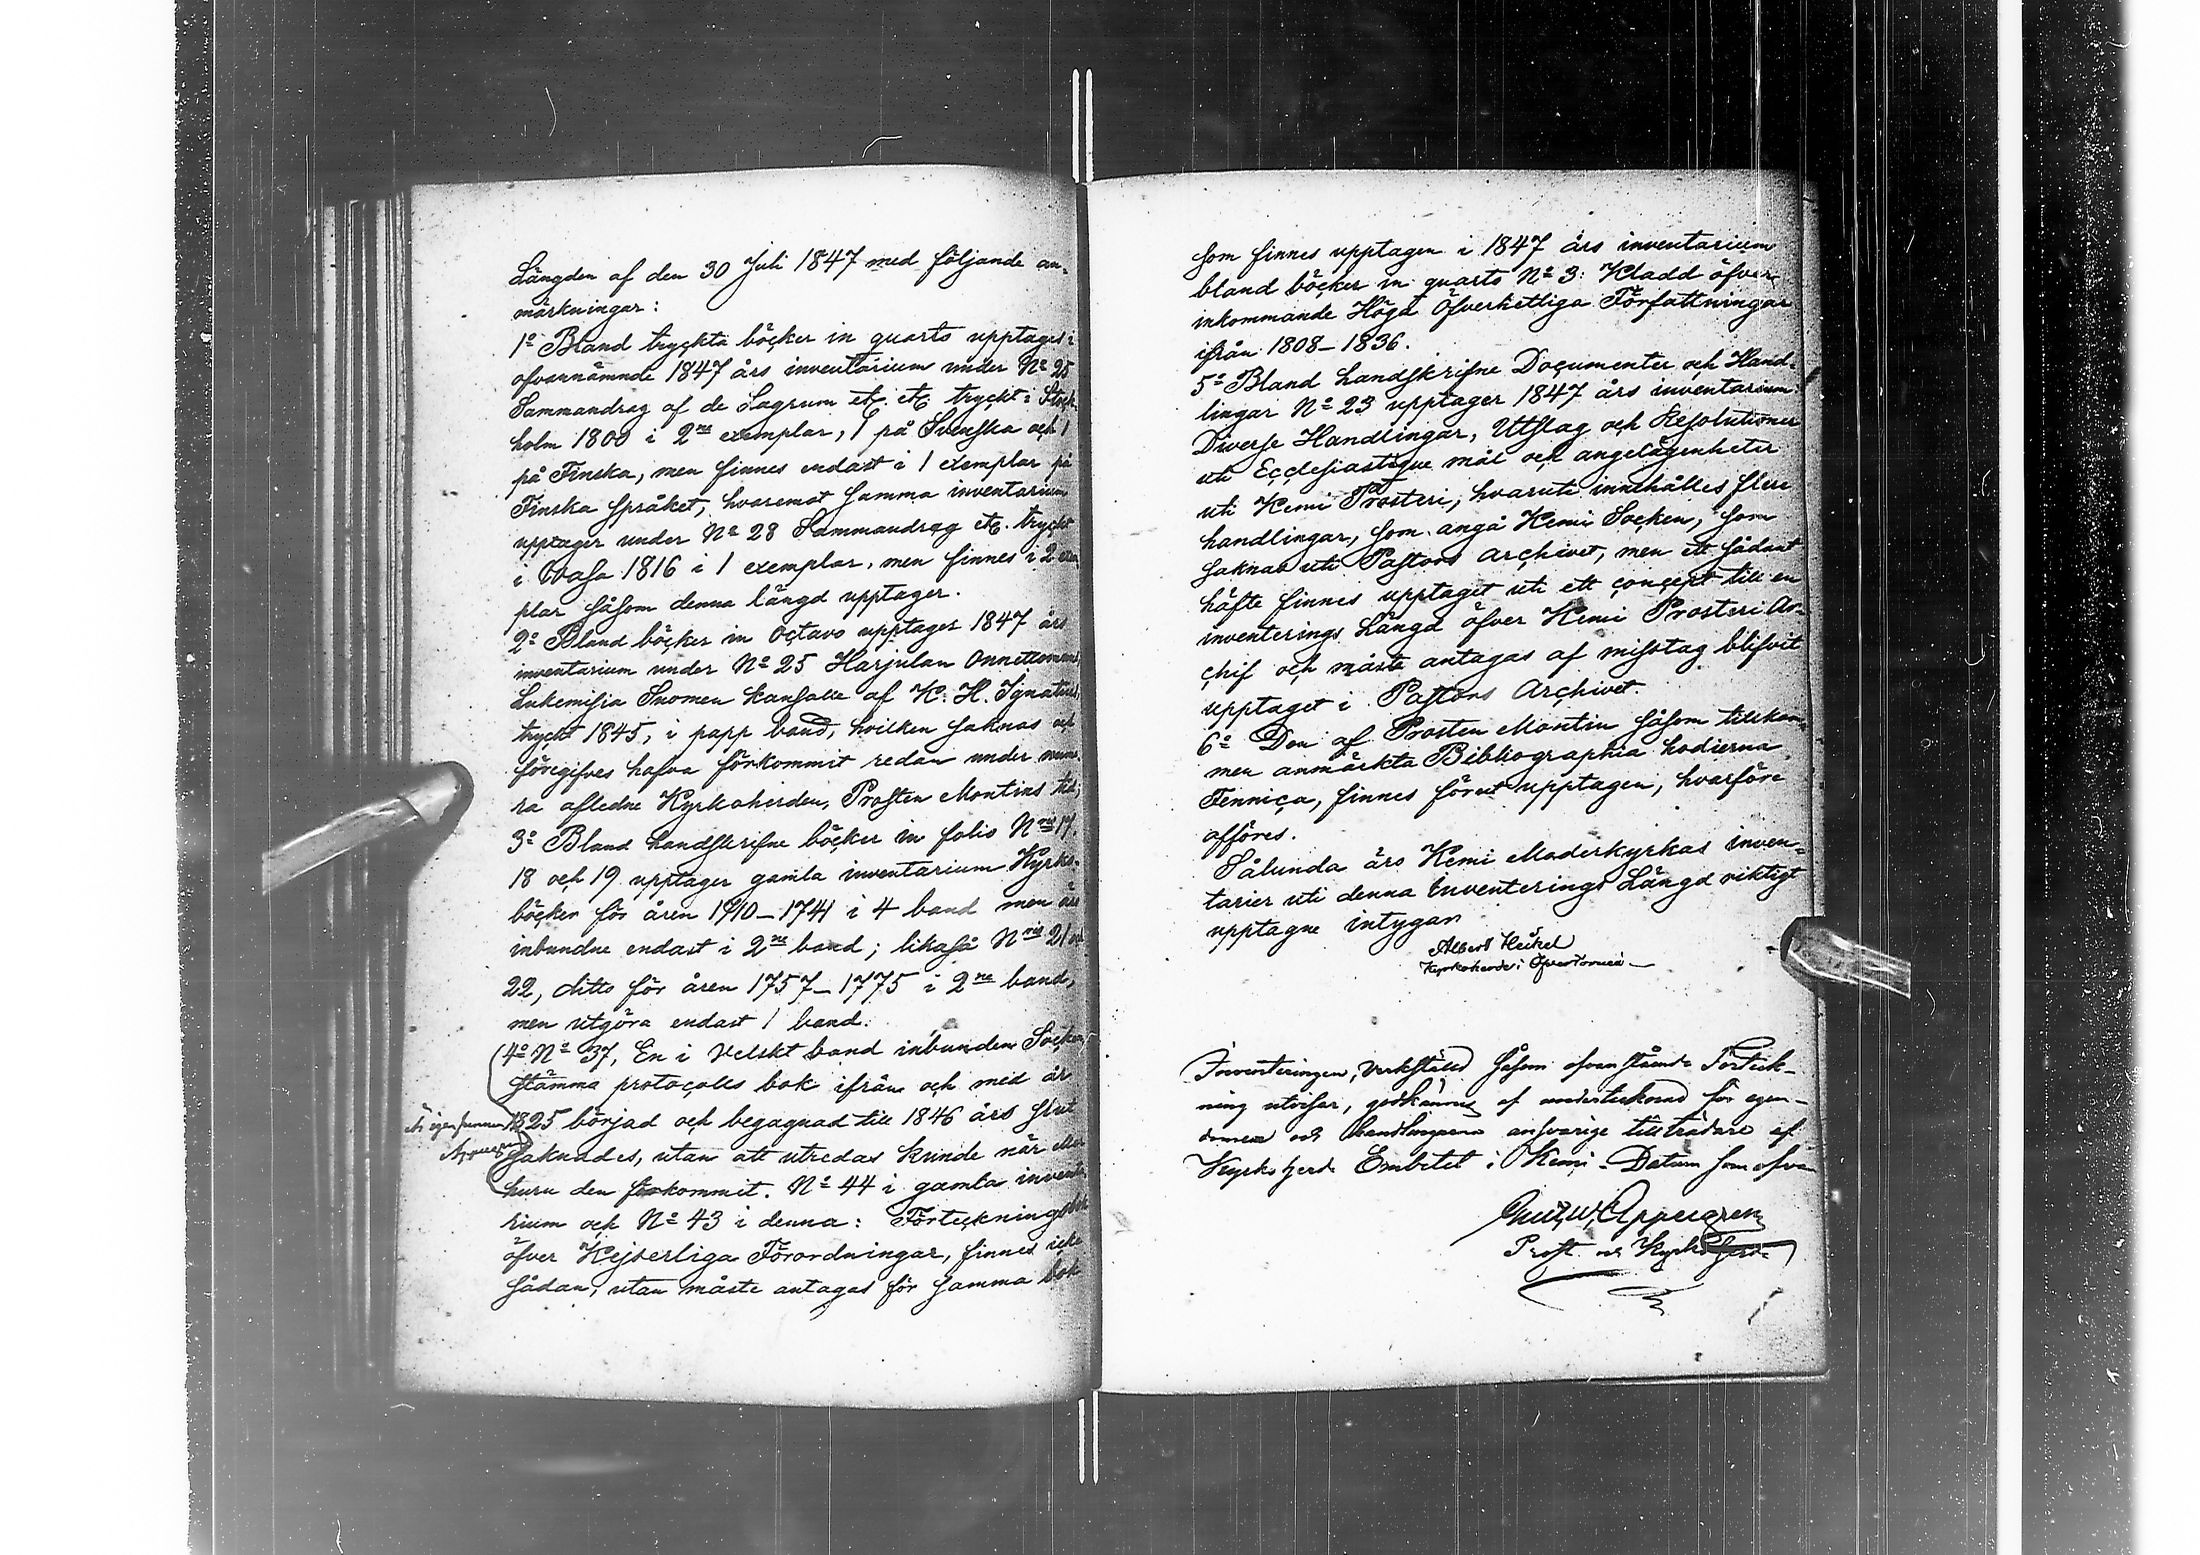 Längden af den 30 Juli 1847 med följande an-
märkningar:
1o Bland tryckta böcker in quarto upptages i
ofvannämnde 1847 års inventarium under No 25
Sammandrag af de Lagrum etc. etc. tryckt i Stock-
holm 1800 i 2ne exemplar, 1 på Svenska och 1
på Finska, men finnes endast i 1 exemplar på
Finska språket, hvaremot samma inventarium
upptager under No 28 Sammandrag etc. tryckt
i Wasa 1816 i 1 exemplar, men finnes i 2 exem
plar såsom denna längd upptager.
2o Bland böcker in Octavo upptager 1847 års
inventarium under No 25 Harjulan Onnettomuus,
Lukemisia Suomen kansalle af K. H. Ignatius,
tryckt 1845, i papp band, hvilken saknas och
föregifves hafva förkommit redan under num-
ra afledne Kyrkoherden, Prosten Montins tid;
3o Bland handskrifne böcker in folio Nris 17,
18 och 19 upptager gamla inventarium Kyrko-
böcker för åren 1710–1741 i 4 band men äro
inbundne endast i 2ne band; likaså Nris 21 och
22, ditto för åren 1757–1775 i 2ne band,
men utgöra endast 1 band.
4o No 37, En i Velskt band inbunden Socken-
stämma protocolls bok ifrån och med år
1825 börjad och begagnad till 1846 års slut
Är igen funnen
saknades, utan att utredas kunde när eller
huru den förkommit. No 44 i gamla inventa
rium och No 43 i denna: Förtecknings bok
öfver Kejserliga Förordningar, finnes icke
sådan, utan måste antagas för samma bok
som finnes upptagen i 1847 års inventarium
bland böcker in quarto No 3: Kladd öfver
inkommande Höga Öfverhetliga Författningar
ifrån 1808–1836.
5o Bland handskrifne Documenter och Hand-
lingar No 23 upptager 1847 års inventarium:
Diverse Handlingar, Utslag och Resolutioner
uti Ecclesiastique mål och angelägenheter
uti Kemi Prosteri, hvaruti innehålles flere
handlingar, som angå Kemi Socken, som
saknas uti Pastors Archivet, men ett sådant
häfte finnes upptaget uti ett concept till en
inventerings Längd öfver Kemi Prosteri Ar-
chif och måste antagas af misstag blifvit
upptaget i Pastors Archivet.
6o Den af Prosten Montin såsom tillkom-
men anmärkta Bibliographia hodierna
Fennica, finnes förut upptagen, hvarföre
afföres.
Sålunda äro Kemi Moderkyrkas inven-
tarier uti denna Inventerings Längd riktigt
upptagne intygar
Albert Heikel
Kyrkoherde i Öfvertorneå
Inventeringen, verkställd såsom ofvanstående Förteck-
ning utvisar, godkännes af undertecknad för egen-
domen och handlingarne ansvarige tillträdare af
Kyrkoherde Embetet i Kemi. Datum som ofvan
Gust. W. Appelgren
Prost och Kyrkoherde